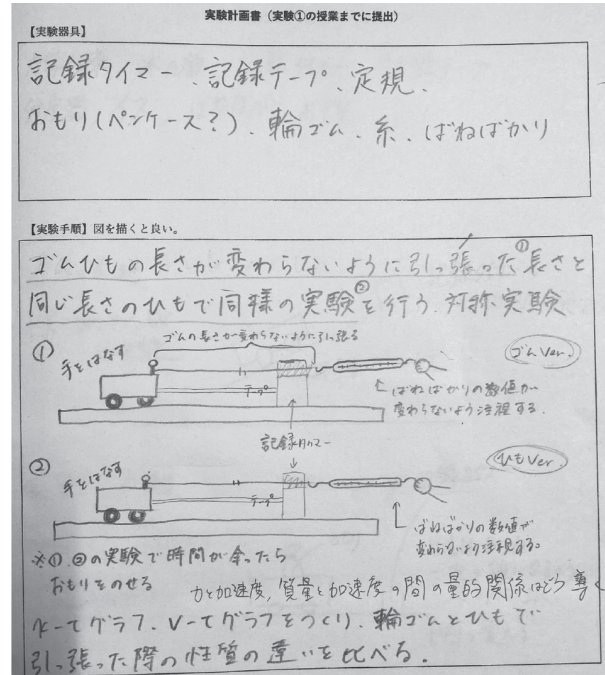 実験計画書（実験①の授業までに提出）
【実験器具】
記録タイマー、記録テープ、定規、
おもり(ペンケース?)、輪ゴム、糸、ばねばかり
【実験手順】図を描くと良い。
ゴムひもの長さが変わらないように引っ張った①長さと
同じ長さのひもで同様の実験②を行う、対称実験
① 手をはなす
ゴムの長さが変わらないように引っ張る
ゴムVer.
テープ
ばねばかりの数値が
変わらないよう注視する.
記録タイマー
② 手をはなす
ひもVer.
テープ
ばねばかりの数値が
変わらないよう注視する。
※①,②の実験で時間が余ったら
おもりをのせる
力と加速度,質量と加速度の間の量的関係はどう導く
x-tグラフ、v-tグラフをつくり、輪ゴムとひもで
引っ張った際の性質の違いを比べる.